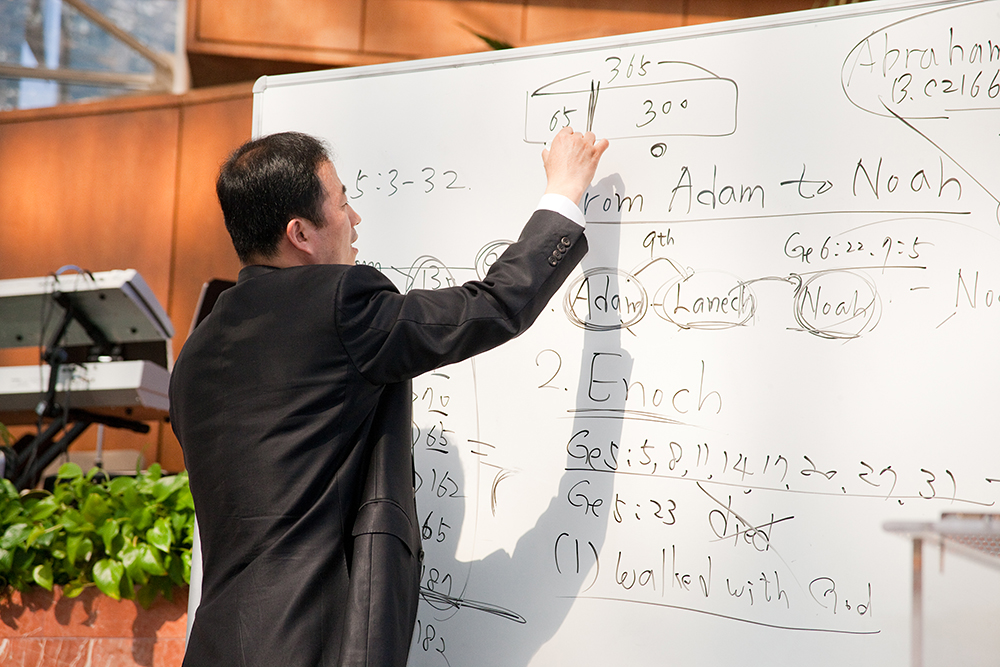 365
65 300
Abraham
B.C2166
5:3-32.
From Adam to Noah
9th
Ge 6:22. 7:5
Adam - Lamech Noah - No
2. Enoch
Ge5:5,8,11,14,17,20,27,31
Ge 5:23 died
(1) Walked with God
70
65 =
162
65
187
182